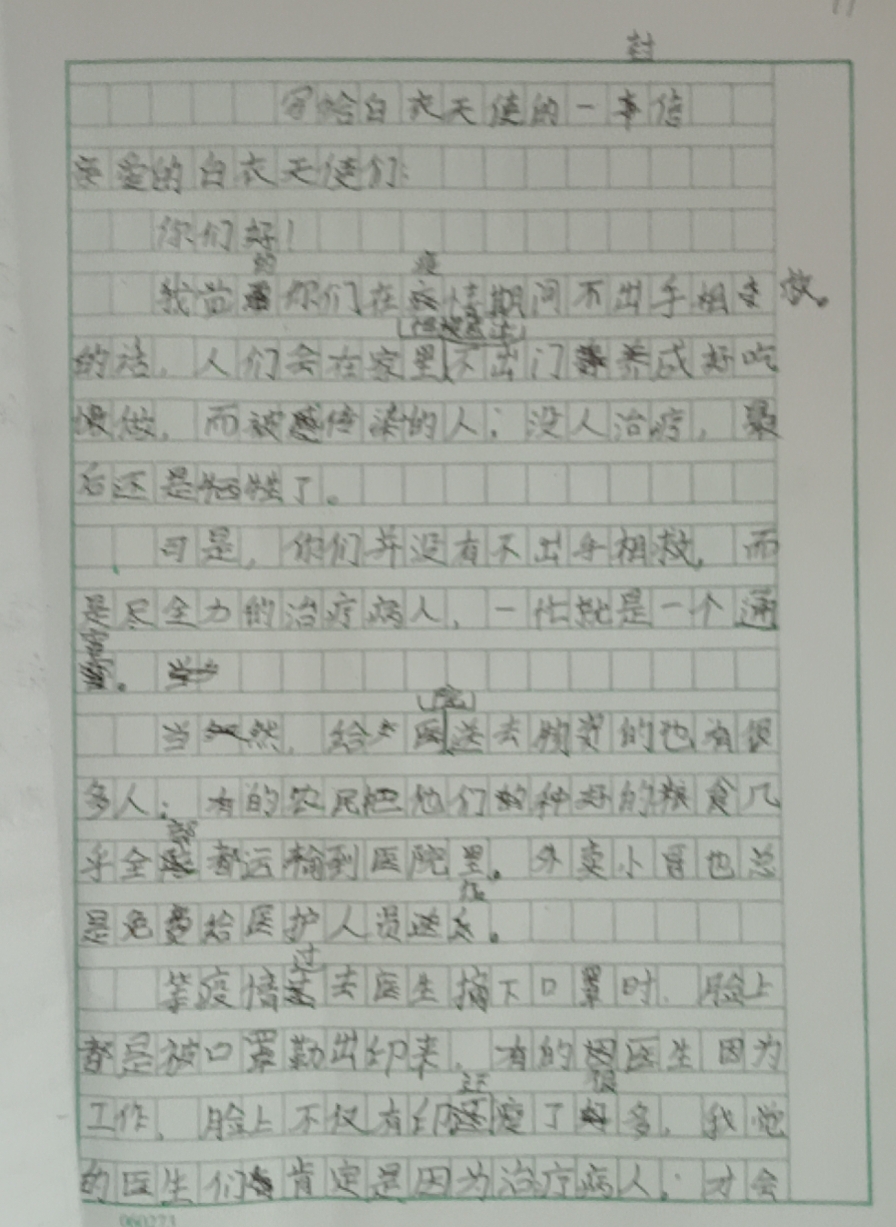 封
写给白衣天使的一信
亲爱的白衣天使们:
你们好!
我当的你们在疫情期间不出手相救。
的话,人们会在家里不出门养成好吃
懒做,而被传染的人;没人治疗,最
后还是牺牲了。
可是,你们并没有不出手相救,而
是尽全力的治疗病人,一忙就是一个通
宵。
当然,给医院送去物资的也有很
多人;有的农民把他们种好的粮食几
乎全部都运输到医院里。外卖小哥也总
是免费给医护人员送饭。
等疫情过去医生摘下口罩时,脸上
都是被口罩勒出印来,有的医生因为
工作,脸上不仅有印还瘦了很多,我
的医生们肯定是因为治疗病人;才会
060273